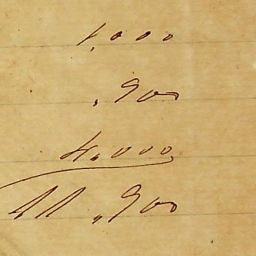 1.000
.900
40.000
41.900